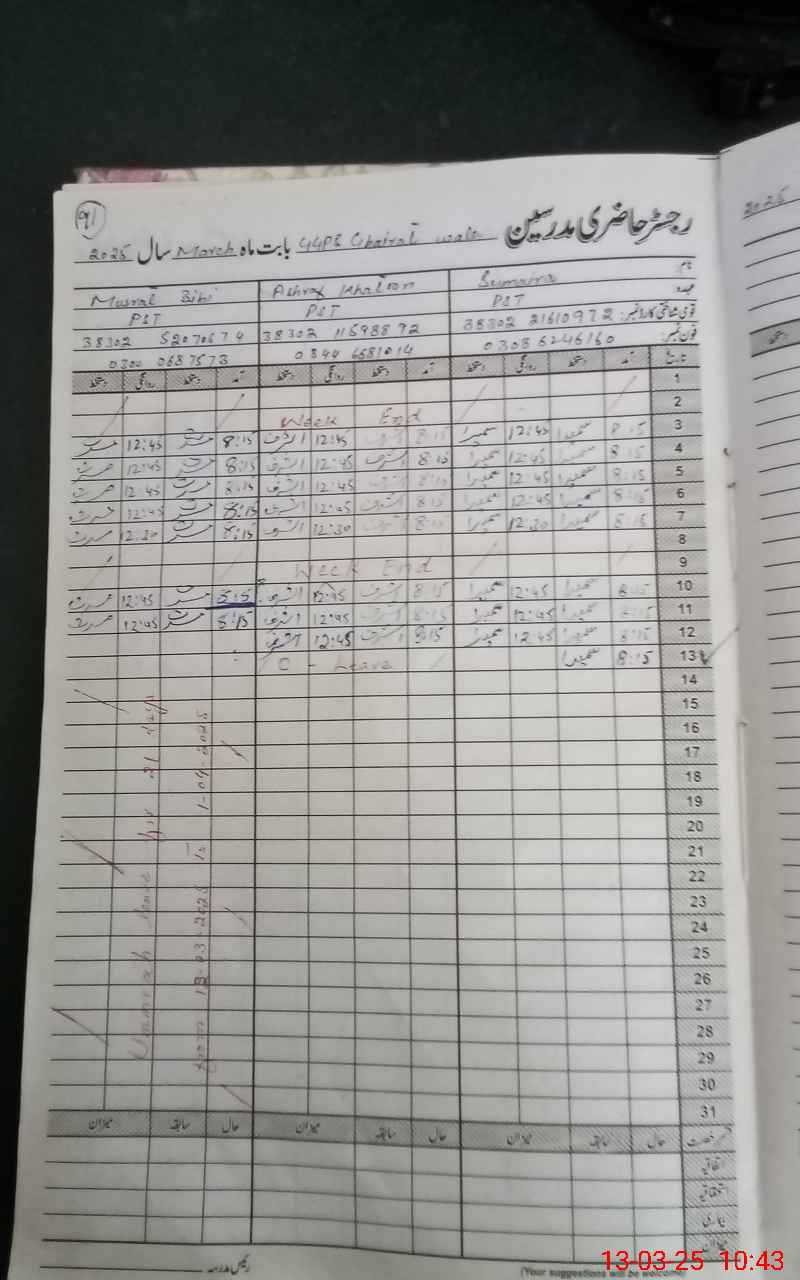 91
رجسٹر حاضری مدرسین GGPS بابت ماہ March سال 2025
نام Sumaira Ashraf Khatoon Musrat Bibi
عہدہ PST PST PST
قومی شناختی کارڈ نمبر: 38302 21610972 38302 11598892 38302 5207067 4
فون نمبر: 0308 6246160 0344 6581014 0300 0687573
تاریخ آمد دستخط روانگی دستخط آمد دستخط روانگی دستخط آمد دستخط روانگی دستخط
1
2 Week End
3 8:15 سمیرا 12:45 سمیرا 8:15 اشرف 12:45 اشرف 8:15 مسرت 12:45 مسرت
4 8:15 سمیرا 12:45 سمیرا 8:15 اشرف 12:45 اشرف 8:15 مسرت 12:45 مسرت
5 8:15 سمیرا 12:45 سمیرا 8:15 اشرف 12:45 اشرف 8:15 مسرت 12:45 مسرت
6 8:15 سمیرا 12:45 سمیرا 8:15 اشرف 12:45 اشرف 8:15 مسرت 12:45 مسرت
7 8:15 سمیرا 12:30 سمیرا 8:15 اشرف 12:30 اشرف 8:15 مسرت 12:30 مسرت
8
9 Week End
10 8:15 سمیرا 12:45 سمیرا 8:15 اشرف 12:45 اشرف 8:15 مسرت 12:45 مسرت
11 8:15 سمیرا 12:45 سمیرا 8:15 اشرف 12:45 اشرف 8:15 مسرت 12:45 مسرت
12 8:15 سمیرا 12:45 سمیرا 8:15 اشرف 12:45 اشرف
13 8:15 سمیرا C - Leave
14
15
16
17
18
19
20
21
22
23
24
25
26
27
28
29
30
31
Ummrah leave for 21 days
from 12-03-2025 To 1-04-2025
قسم رخصت حال سابقہ میزان حال سابقہ میزان حال سابقہ میزان
اتفاقیہ
استحقاقیہ
بیماری
میزان
رئیس مدرسہ
(Your suggestions will be welcome)
2025
دستخط
13-03-25 10:43